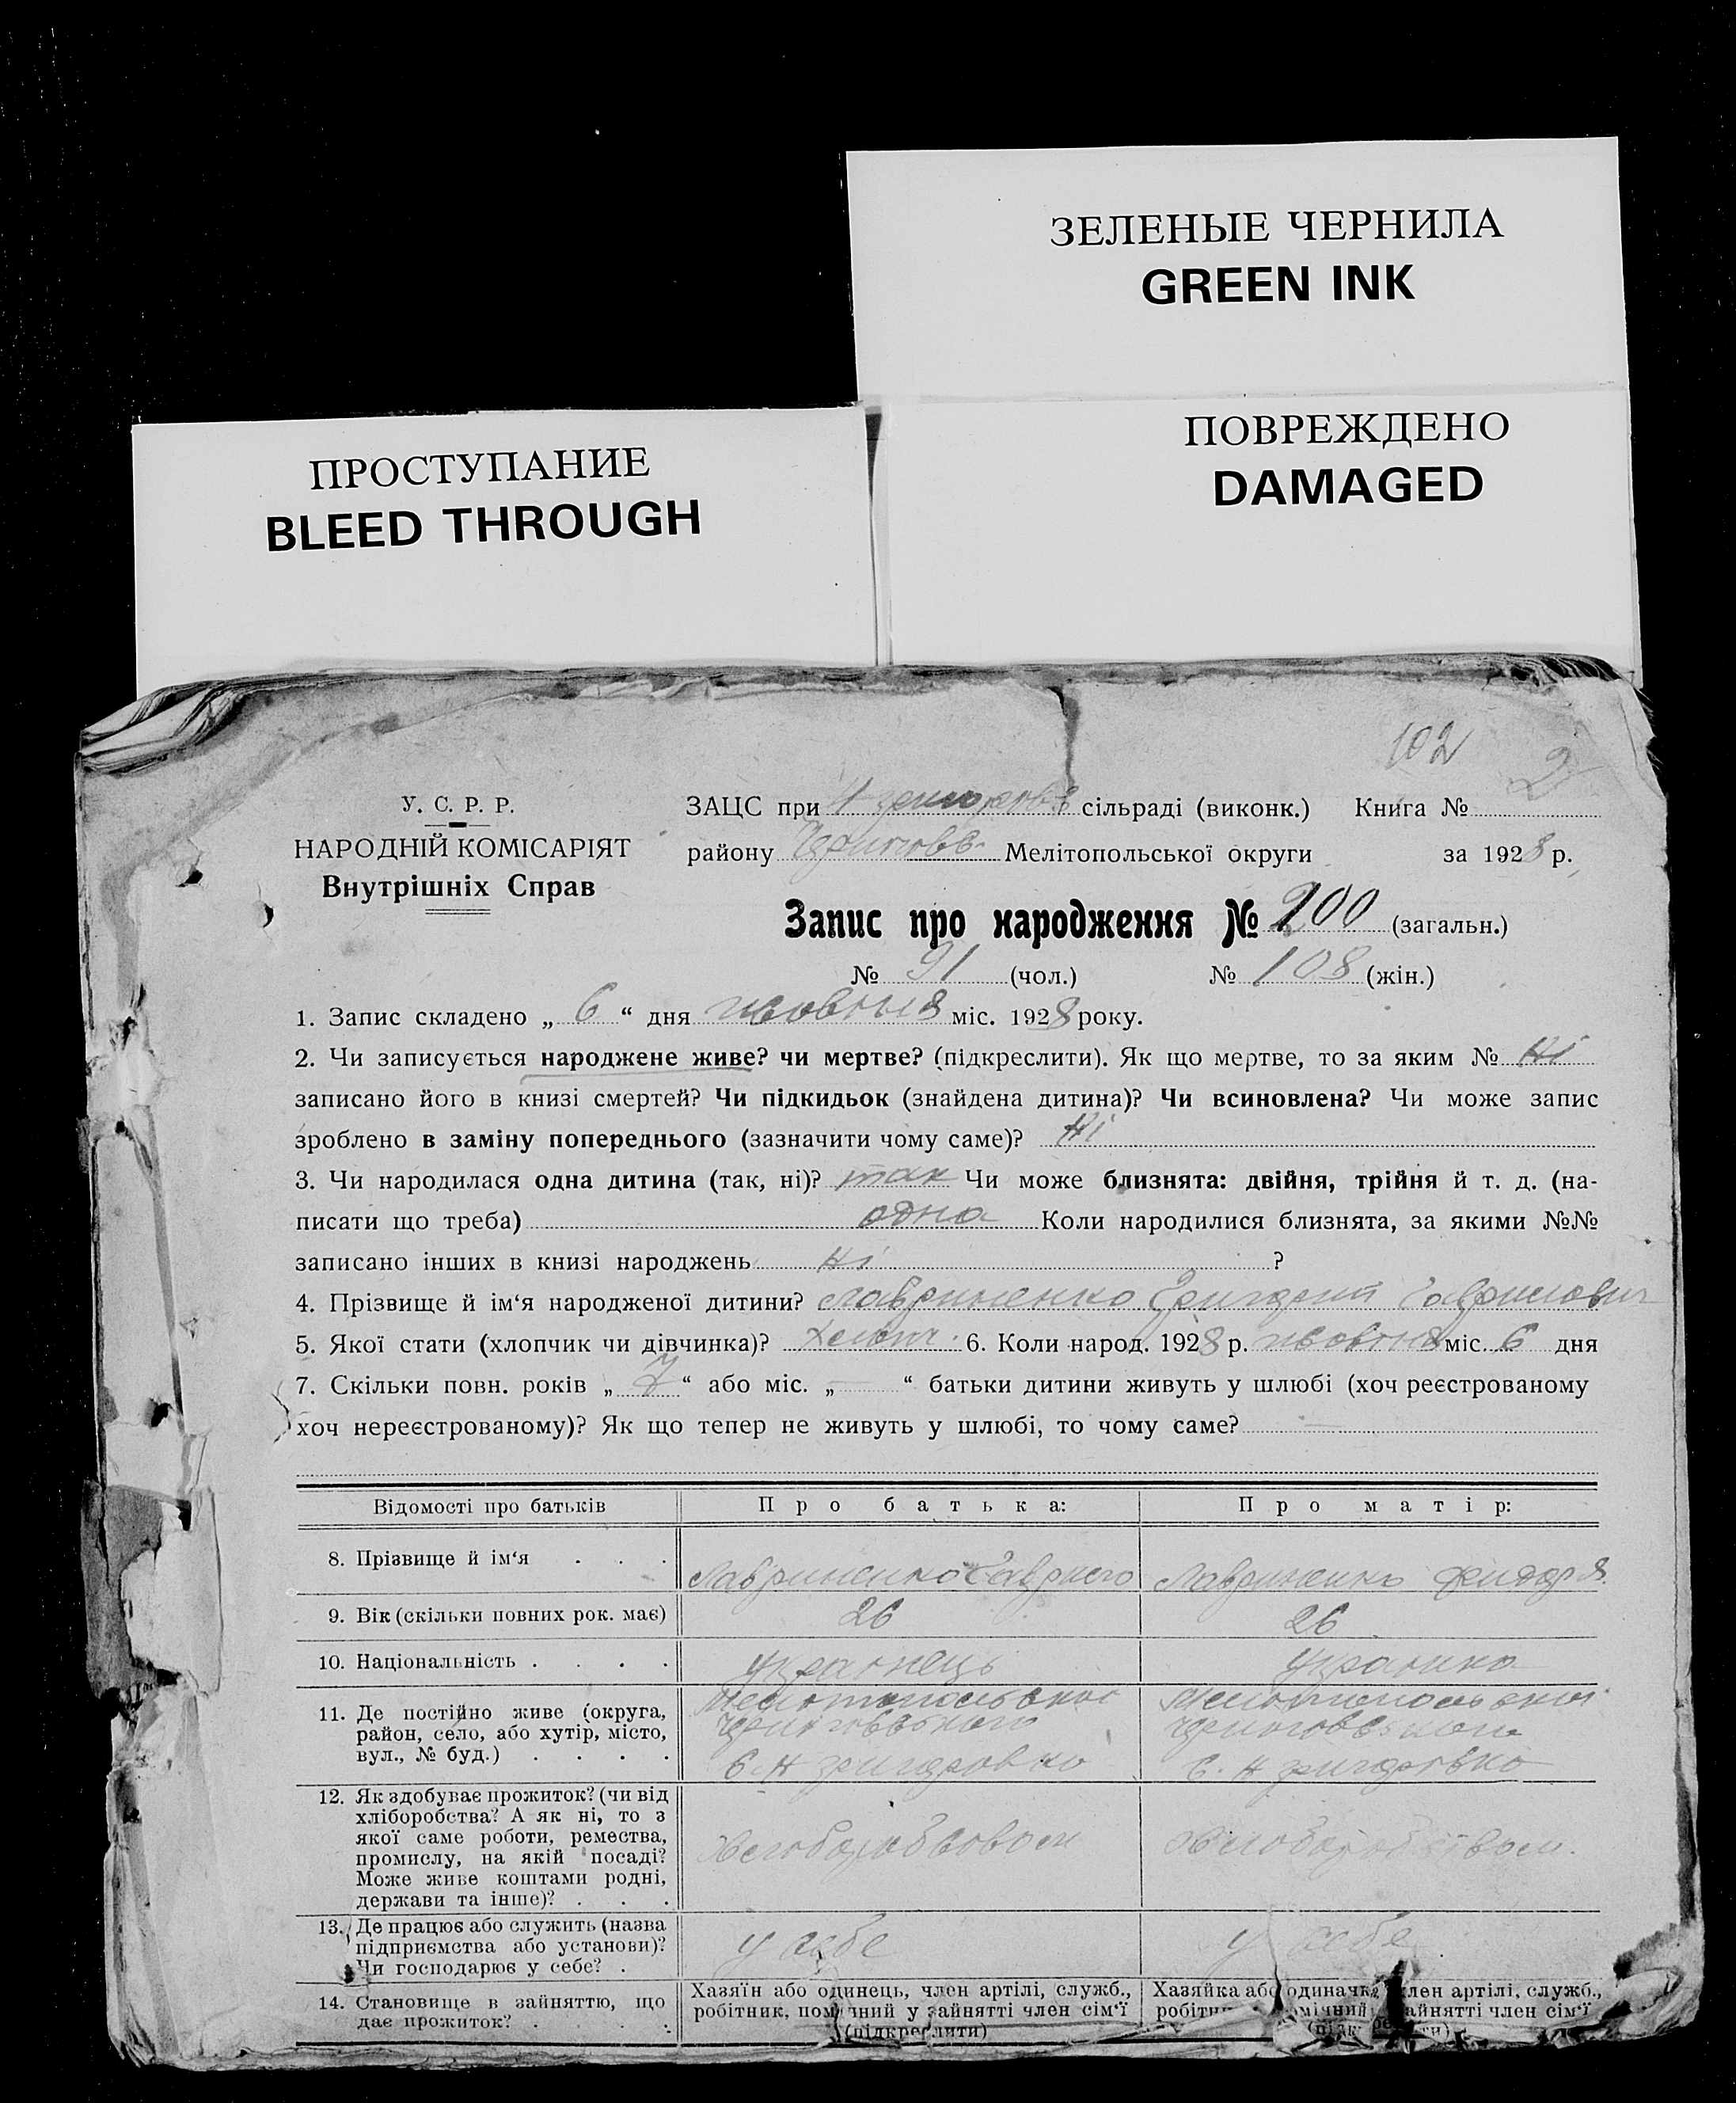 ЗЕЛЕНЫЕ ЧЕРНИЛА
GREEN INK
ПРОСТУПАНИЕ
BLEED THROUGH
ПОВРЕЖДЕНО
DAMAGED
102
2
У. С. Р. Р.
НАРОДНІЙ КОМІСАРІЯТ
Внутрішніх Справ
ЗАЦС при сільраді (виконк.) Книга №
району Мелітопольської округи за 1928 р.
Запис про народження № 200 (загальн.)
№ 91 (чол.) № 108 (жін.)
1. Запис складено „ 6 “ дня жовтня міс. 1928 року.
2. Чи записується народжене живе? чи мертве? (підкреслити). Як що мертве, то за яким № ні
записано його в книзі смертей? Чи підкидьок (знайдена дитина)? Чи всиновлена? Чи може запис
зроблено в заміну попереднього (зазначити чому саме)? ні
3. Чи народилася одна дитина (так, ні)? так Чи може близнята: двійня, трійня й т. д. (на-
писати що треба) одна Коли народилися близнята, за якими №№
записано інших в книзі народжень ні ?
4. Прізвище й ім‘я народженої дитини? Лавриненко Григорий Гаврилович
5. Якої стати (хлопчик чи дівчинка)? хлопч. 6. Коли народ. 1928 р. жовтня міс. 6 дня
7. Скільки повн. років „ 7 “ або міс. „ — “ батьки дитини живуть у шлюбі (хоч реєстрованому
хоч нереєстрованому)? Як що тепер не живуть у шлюбі, то чому саме? —
Відомості про батьків Про батька: Про матір:
8. Прізвище й ім‘я . . . Лавриненко Гаврило Лавриненко
9. Вік (скільки повних рок. має) 26 26
10. Національність . . . . українець українка
11. Де постійно живе (округа,
район, село, або хутір, місто,
вул., № буд.) . . . .
Мелітопольської
с. Н григоровка
Мелітопольської
с. Н григоровка
12. Як здобуває прожиток? (чи від
хліборобства? А як ні, то з
якої саме роботи, ремества,
промислу, на якій посаді?
Може живе коштами родні,
держави та інше)? . . .
13. Де працює або служить (назва
підприємства або установи)?
Чи господарює у себе? .
у себе у себе
14. Становище в зайняттю, що
дає прожиток? . . . .
Хазяїн або одинець, член артілі, служб.,
робітник, помічний у зайнятті член сім‘ї
(підкреслити)
Хазяйка або одиначка, член артілі, служб.,
зайнятті член сім‘ї